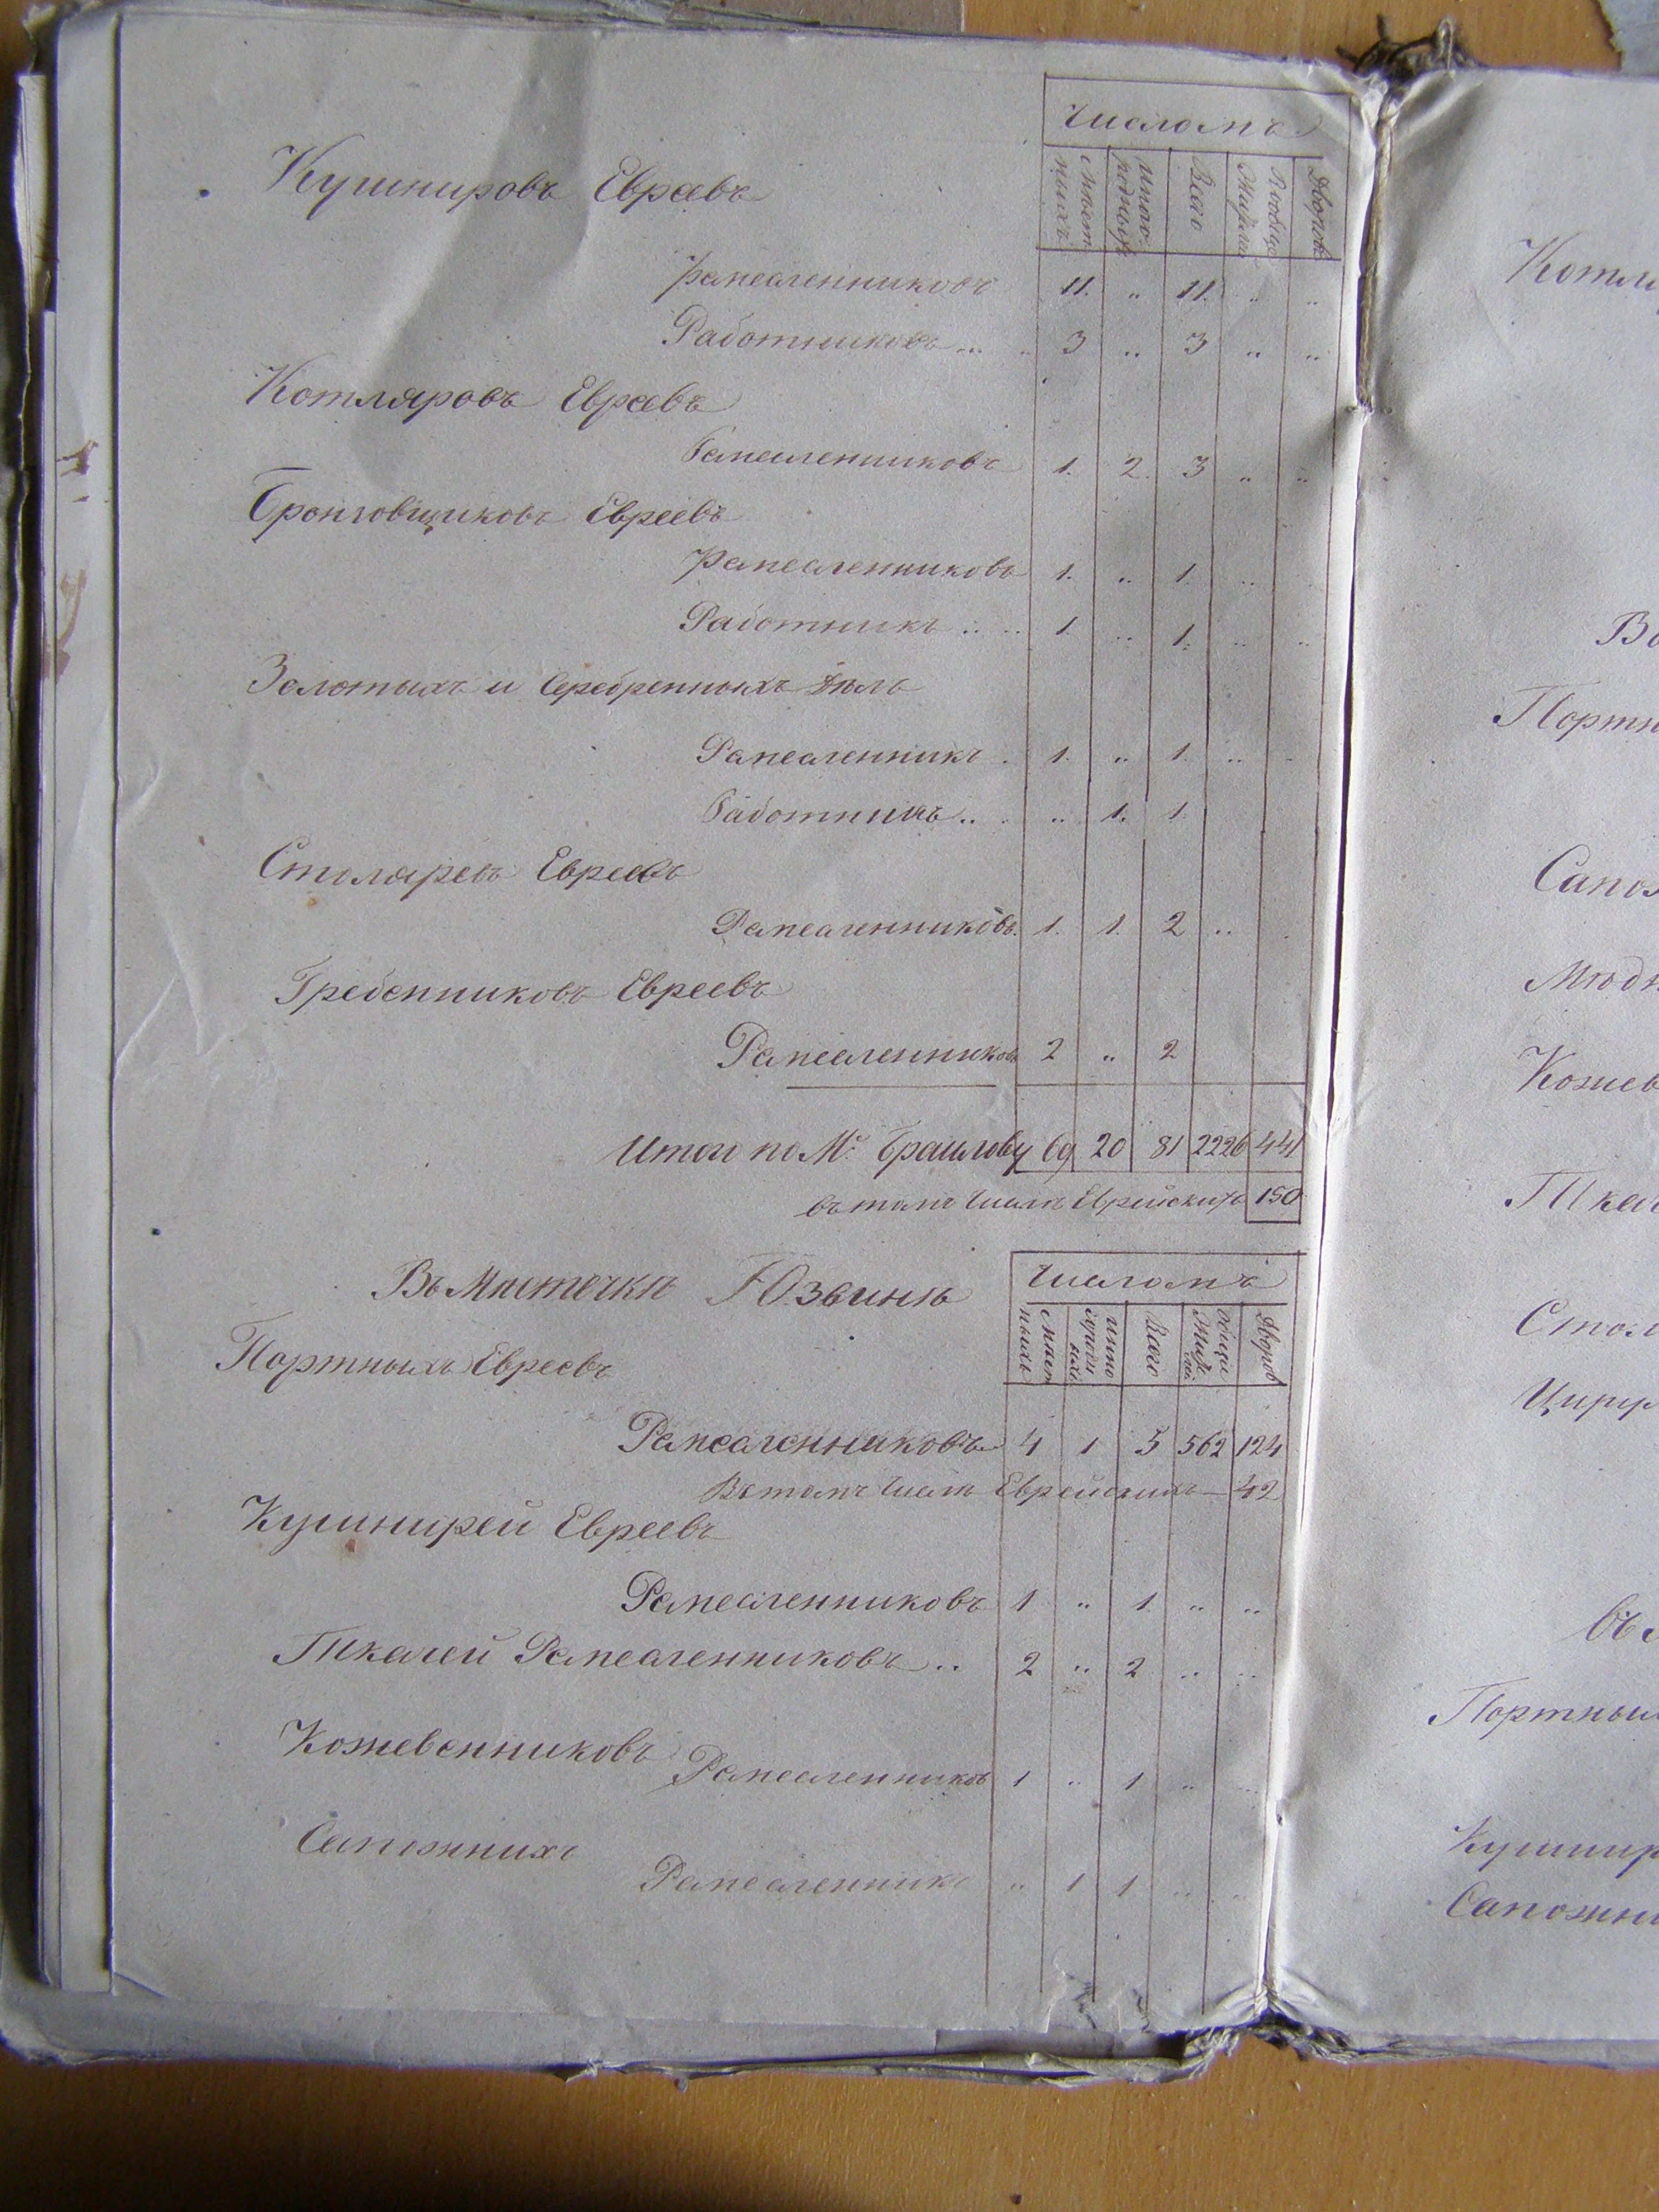 Числомъ
Мѣстныхъ Иногородныхъ Всего Вообще Жителей Дворовъ
Кушнировъ Евреевъ
Ремесленниковъ 11. „ 11. „ „
Работниковъ... „ 3 „ 3 „ „
Котляровъ Евреевъ
Ремесленниковъ 1. 2. 3 „ „
Бронзовщиковъ Евреевъ
Ремесленниковъ 1. „ 1. „
Работникъ .. .. 1. „ 1. „ „
Золотыхъ и Серебренныхъ дѣлъ
Ремесленникъ . 1. „ 1. „ „
Работникъ.. . „ 1. 1.
Столяревъ Евреевъ
Ремесленниковъ. 1. 1. 2 „
Гребенниковъ Евреевъ
Ремесленниковъ 2 „ 2
Итого по М. Браилову 69 20 81 2226 441
въ томъ числѣ Еврейскихъ 150
Въ Мѣстечкѣ Юзвинѣ
Числомъ
Мѣстныхъ Иногородныхъ Всего Вообще Жителей Дворовъ
Портныхъ Евреевъ
Ремесленниковъ 4 1 5 562 124
Въ томъ числѣ Еврейскихъ — 42
Кушнирей Евреевъ
Ремесленниковъ 1 „ 1. „ „
Ткачей Ремесленниковъ .. 2 „ 2 „ „
Кожевенниковъ
Ремесленниковъ 1 „ 1 „ „
Сапожникъ
Ремесленникъ „ 1 1 „ „
Котля
Портн
Сапож
Мѣдн
Кожев
Ткач
Стол
Цирул
Портных
Кушнир
Сапожни